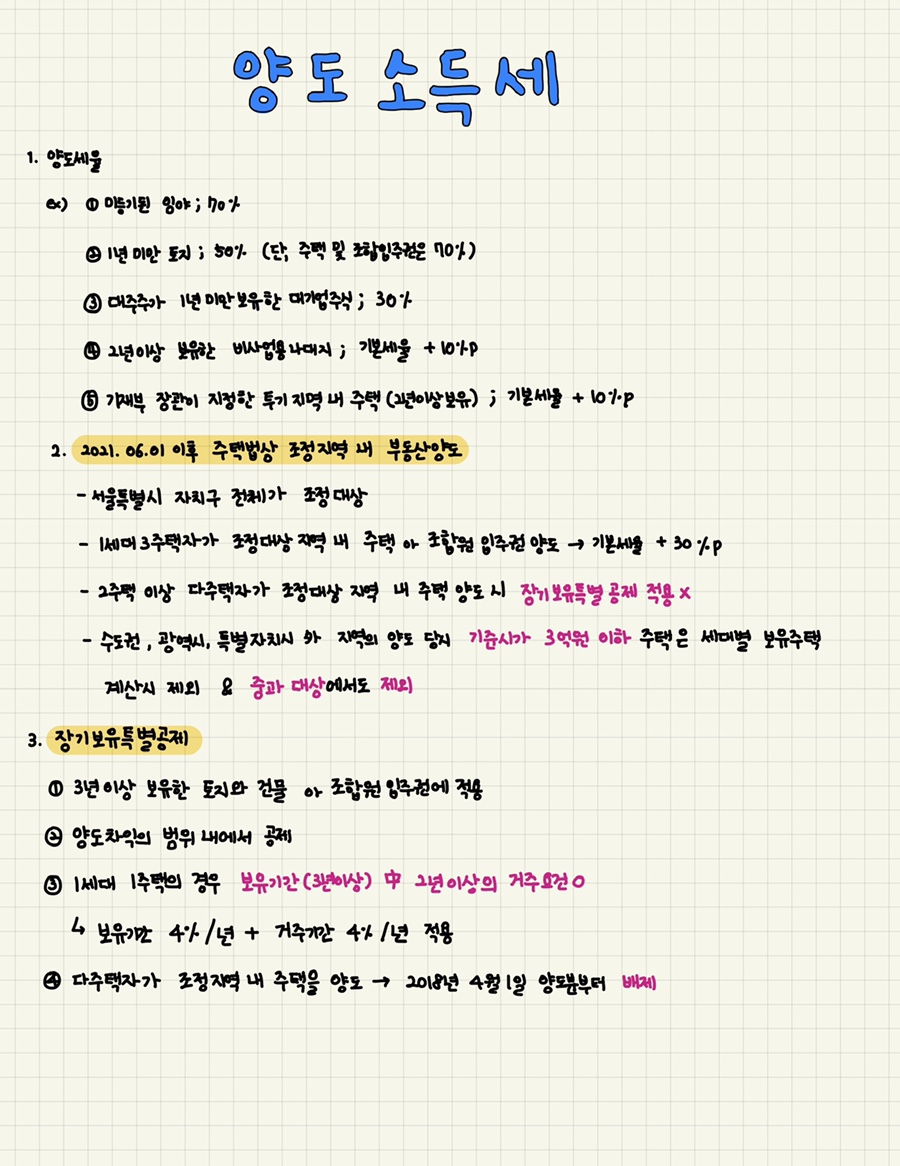 양도 소득세
1. 양도세율
ex) ① 미등기된 임야 ; 70%
② 1년 미만 토지 ; 50% (단, 주택 및 조합입주권은 70%)
③ 대주주가 1년 미만 보유한 대기업주식 ; 30%
④ 2년이상 보유한 비사업용나대지 ; 기본세율 +10%p
⑤ 기재부 장관이 지정한 투기 지역 내 주택 (2년이상보유) ; 기본세율 + 10%p
2. 2021. 06.01 이후 주택법상 조정지역 내 부동산양도
- 서울특별시 자치구 전체가 조정대상
- 1세대 3주택자가 조정대상 지역 내 주택 or 조합원 입주권 양도 → 기본세율 + 30%p
- 2주택 이상 다주택자가 조정대상 지역 내 주택 양도 시 장기보유특별공제 적용 x
- 수도권, 광역시, 특별자치시 外 지역의 양도 당시 기준시가 3억원 이하 주택은 세대별 보유주택
계산시 제외 & 중과 대상에서도 제외
3. 장기보유특별공제
① 3년이상 보유한 토지와 건물 or 조합원 입주권에 적용
② 양도차익의 범위 내에서 공제
③ 1세대 1주택의 경우 보유기간 (3년이상) 中 2년이상의 거주요건 O
↳ 보유기간 4%/년 + 거주기간 4%/년 적용
④ 다주택자가 조정지역 내 주택을 양도 → 2018년 4월 1일 양도분부터 배제